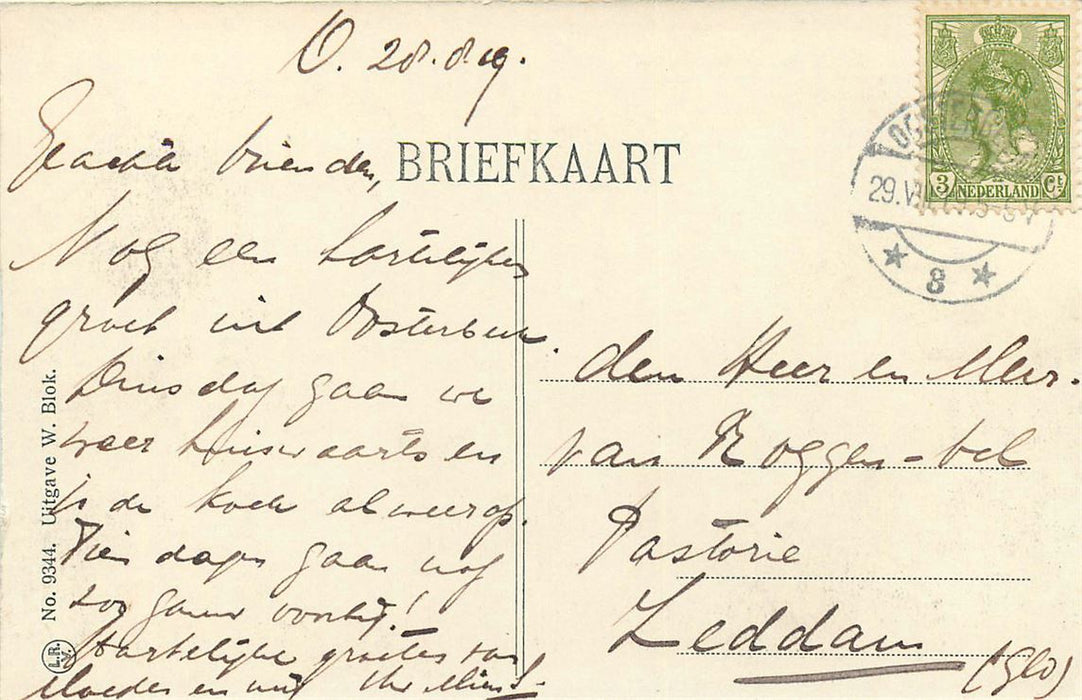 O. 28.8.19.
Geachte vrienden,
BRIEFKAART
Nog een hartelijken
groet uit Oosterbeek.
Dinsdag gaan we
weer huiswaarts en
is de koek alweer op.
Tien dagen gaan nog
zoo gauw voorbij!
Hartelijke groeten van
Moeder en mij
den Heer en Mevr.
van Roggen-bel
Pastorie
Zeddam
(Gld)
3 NEDERLAND Ct
29.VIII
8
No. 9344. Uitgave W. Blok.
L.R.